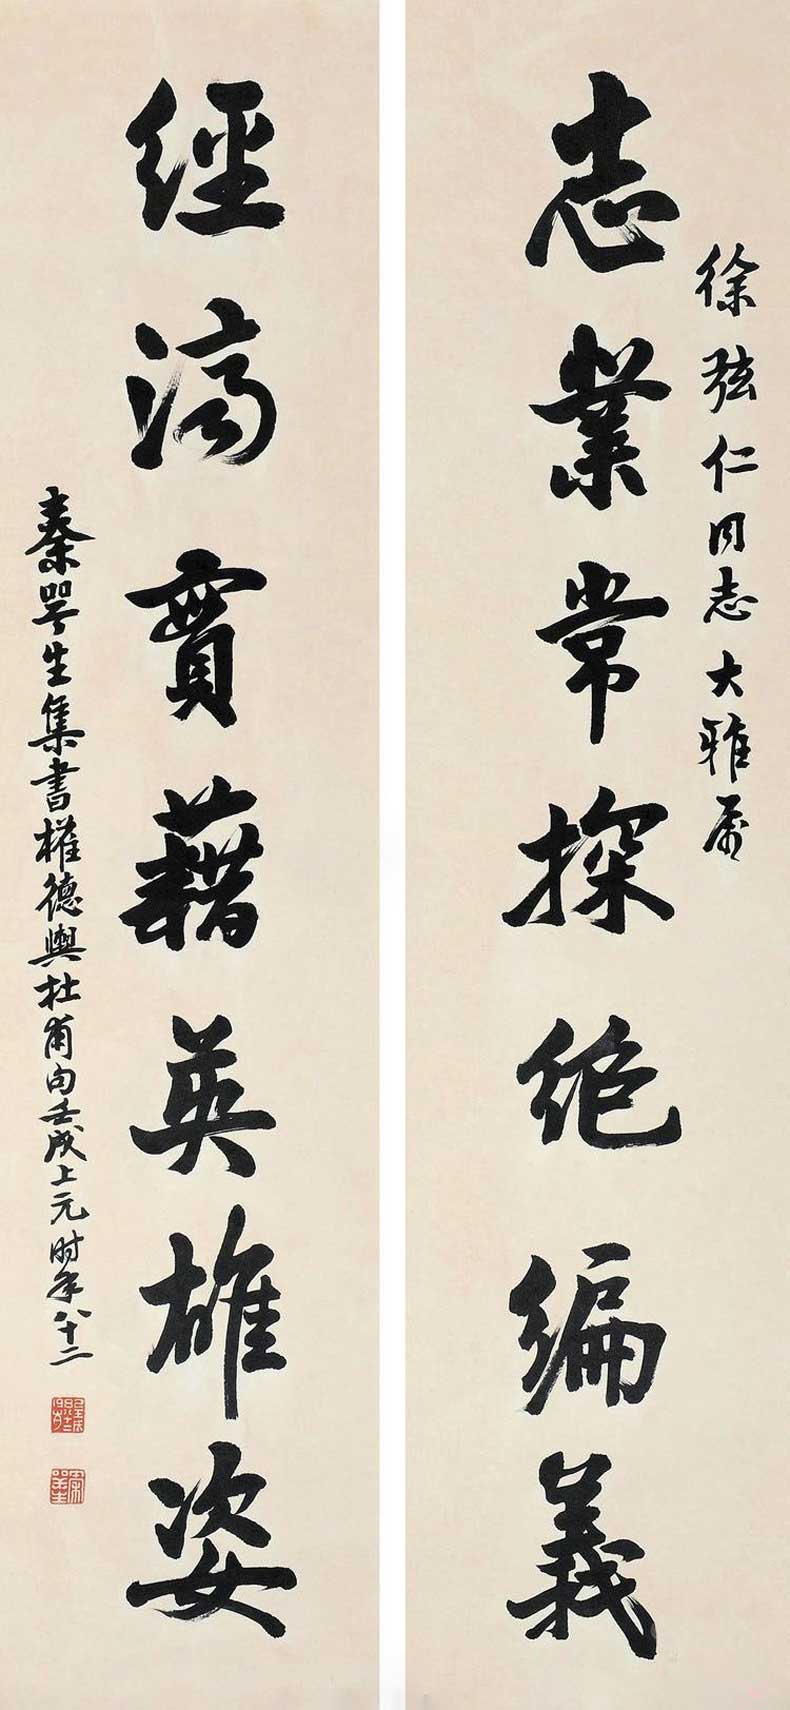 徐弦仁同志大雅屬
志業常探絕編義
經濟實藉英雄姿
秦咢生集書權德輿杜甫句壬戌上元时年八十二